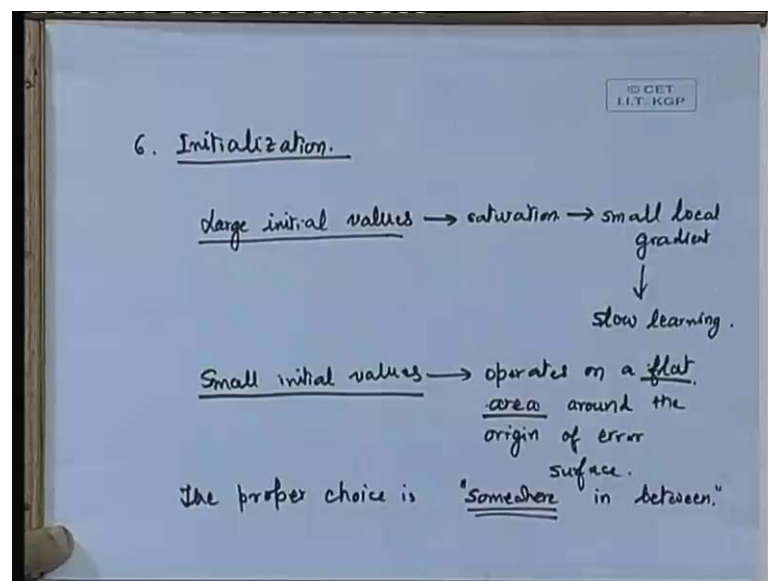 © CET
I.I.T. KGP
6. Initialization.
Large initial values → saturation → small local
gradient
↓
slow learning.
Small initial values → operates on a flat
area around the
origin of error
surface.
The proper choice is "somewhere in between."